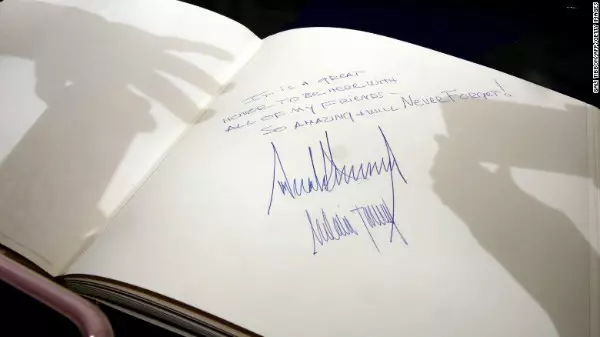 IT IS A GREAT
HONOR TO BE HERE WITH
ALL OF MY FRIENDS -
SO AMAZING + WILL NEVER FORGET!
Donald Trump
Melania Trump
GALI TIBBON/AFP/GETTY IMAGES